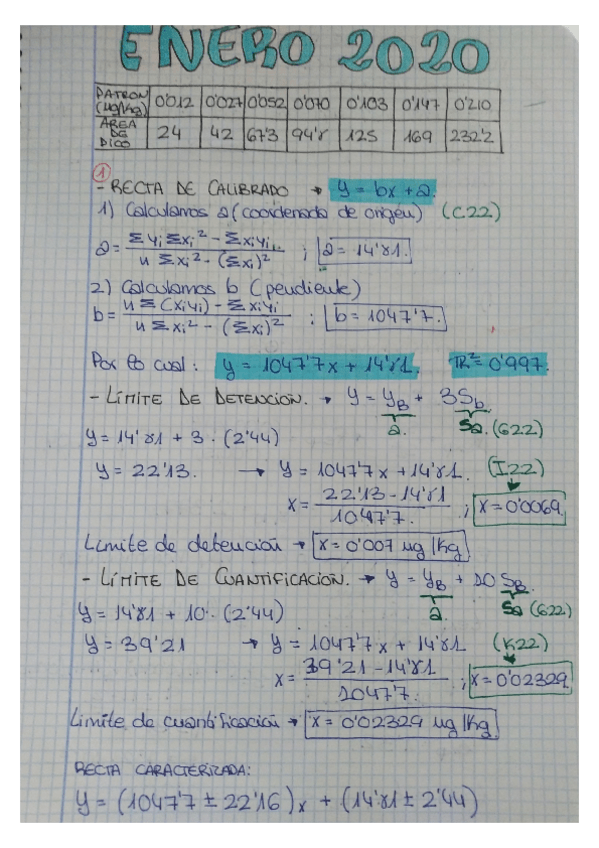 ENERO 2020
PATRON (µg/Kg) 0'012 0'027 0'052 0'070 0'103 0'147 0'210
AREA DE PICO 24 42 67'3 94'8 125 169 232'2
①
- RECTA DE CALIBRADO → y = bx + a.
1) Calculamos a (coordenada de origen) (C22)
a = Σyi Σxi² - Σxiyi / n Σxi² - (Σxi)² ; a = 14'81.
2) Calculamos b (pendiente)
b = n Σ(xiyi) - Σxiyi / n Σxi² - (Σxi)² ; b = 1047'7.
Por lo cual: y = 1047'7x + 14'81. R² = 0'997.
- LÍMITE DE DETENCIÓN. → y = yB + 3Sb
a. Sa. (G22)
y = 14'81 + 3 · (2'44)
y = 22'13. → y = 1047'7x + 14'81. (I22)
x = 22'13 - 14'81 / 1047'7. ; x = 0'0069.
Límite de detención → x = 0'007 µg/Kg
- LÍMITE DE CUANTIFICACION. → y = yB + 10 SB
a Sa (G22)
y = 14'81 + 10 · (2'44)
y = 39'21 → y = 1047'7x + 14'81 (K22)
x = 39'21 - 14'81 / 1047'7. ; x = 0'02329
Límite de cuantificación → x = 0'02329 µg/Kg
RECTA CARACTERIZADA:
y = (1047'7 ± 22'16)x + (14'81 ± 2'44)